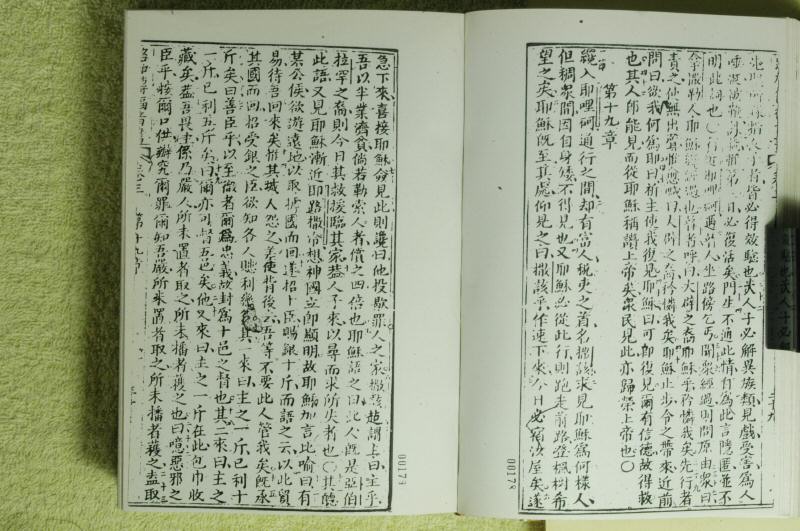 必得效驗也盖人子必解異族類見戲受害爲人
必復活矣門生不通此情行爲此言隱匿並不
明此詞也〇行近耶哩哥遇瞽人坐路傍乞丐聞衆經過則問原由衆曰
拿撒勒人耶穌經過也瞽者呼曰大辟之裔耶穌乎矜憐我矣先行者
責之使無出聲惟愈喊曰大辟之裔矜憐我矣耶穌止步令之帶來近前
問曰欲我何爲耶曰祈主使我復見耶穌曰可即復見爾有信德故得救
也其人即能見而從耶穌稱讚上帝矣衆民見此亦歸榮上帝也〇
第十九章
纔入耶哩哥通行之間却有富人稅吏之首名撒該求見耶穌爲何樣人
但稠衆間因自身矮不得見也又耶穌必從此行則跑走前路登楓樹希
望之矣耶穌既至其處仰見之曰撒該乎作速下來今日必宿汝屋矣遂
急下來喜接耶穌僉見此則讒曰他投歇罪人之家撒該起謂上曰主乎
吾以半業濟貧倘若勒索人者償之四倍也耶穌語之曰此人既是亞伯
拉罕之裔則今日其救援臨其家蓋人子來以尋而求所失者也〇其聽
此語又見耶穌漸近耶路撒冷想神國立即顯明故耶穌加言此喻曰有
某公侯欲游遠地以取據國而回遂招十臣賜銀十斤而語之云以此貿
易待吾回來矣惟其城人怨之差使背後云吾等不要此人管我矣既承
其國而回招受銀之臣欲知各人賺利幾何其一來曰主之一斤已利十
斤矣曰善臣乎以至微者爾爲忠義故封爲十邑之督也其二來曰主之
一斤已利五斤矣曰爾亦可督五邑矣他又來曰主之一斤在此包巾收
藏矣蓋吾畏主係乃嚴人所未置者取之所未播者穫之也曰噫惡邪之
臣乎按爾口供辦究爾罪爾知吾嚴所未置者取之所未播者穫之盍取
第十九章
00178
00179